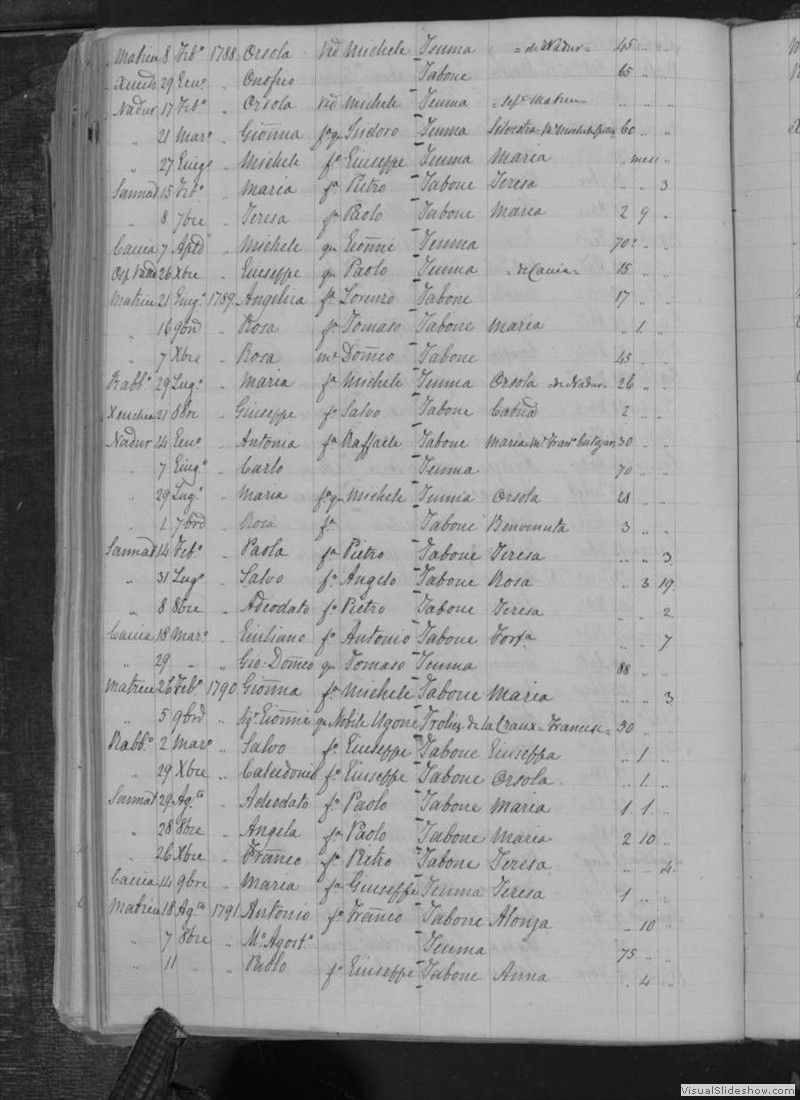 Matrice 8 Feb.º 1788 Orsola vid Michele Tenma =de Nadur= 45 " "
29 Gen.º " Onofrio Tabone 65 " "
Nadur 17 Feb.º " Orsola vid Michele Tenma " " "
" 21 Mar.º " Gioñna fª qm Isidoro Tenma 60 " "
" 27 Giug.º " Michele fº Giuseppe Tenma Maria " mesi "
Sannat 15 Feb.º " Maria fª Pietro Tabone Teresa " " 3
" 8 7bre " Teresa fª Paolo Tabone Maria 2 9 "
Caccia 7 " Michele qm Gioñni Tenma 70 " "
26 Xbre " Giuseppe qm Paolo Tenma =de Caccia= 15 " "
Matrice 21 Giug.º 1789 Angelica fª Lorenzo Tabone 17 " "
" 16 9bre " Rosa fª Tomaso Tabone Maria " 1 "
" 7 Xbre " Rosa Domeo Tabone 45 " "
Rabb.º 29 Lug.º " Maria fª Michele Tenma Orsola de Nadur 26 " "
21 8bre " Giuseppe fº Salvo Tabone 2 " "
Nadur 14 Gen.º " Antonia fª Raffaele Tabone Maria 30 " "
" 7 Giug.º " Carlo Tenma 70 " "
" 29 Lug.º " Maria fª qm Michele Tenma Orsola 28 " "
" 2 7bre " Rosa fª Tabone Benvenuta 3 " "
Sannat 14 Feb.º " Paola fª Pietro Tabone Teresa " " 3
" 31 Lugº " Salvo fº Angelo Tabone Rosa " 3 19
" 8 8bre " Adeodato fº Pietro Tabone Teresa " " 2
Caccia 18 Mar.º " Giuliano fº Antonio Tabone " " 7
" 29 " " Gio-Domeo qm Tomaso Tenma 88 " "
Matrice 26 Feb.º 1790 Gioñna fª Michele Tabone Maria " " 3
" 5 9bre " Sigr Gioñni qm Nobile Ugone de la Craux = 50 " "
Rabb.º 2 Mar.º " Salvo fº Giuseppe Tabone Giuseppa " 1 "
" 29 Xbre " Calcedonio fº Giuseppe Tabone Orsola " 1 "
Sannat 29 Ag.to " Adeodato fº Paolo Tabone Maria 1 1 "
" 28 8bre " Angela fª Paolo Tabone Maria 2 10 "
" 26 Xbre " Franco fº Pietro Tabone Teresa " " 4
Caccia 14 9bre " Maria fª Giuseppe Tenma Teresa 1 " "
Matrice 18 Ag.to 1791 Antonio fº Franco Tabone Alonza " 10 "
" 7 8bre " Mº Agost.º Tenma 75 " "
" 11 " " Paolo fº Giuseppe Tabone Anna " 4 "
VisualSlideshow.com